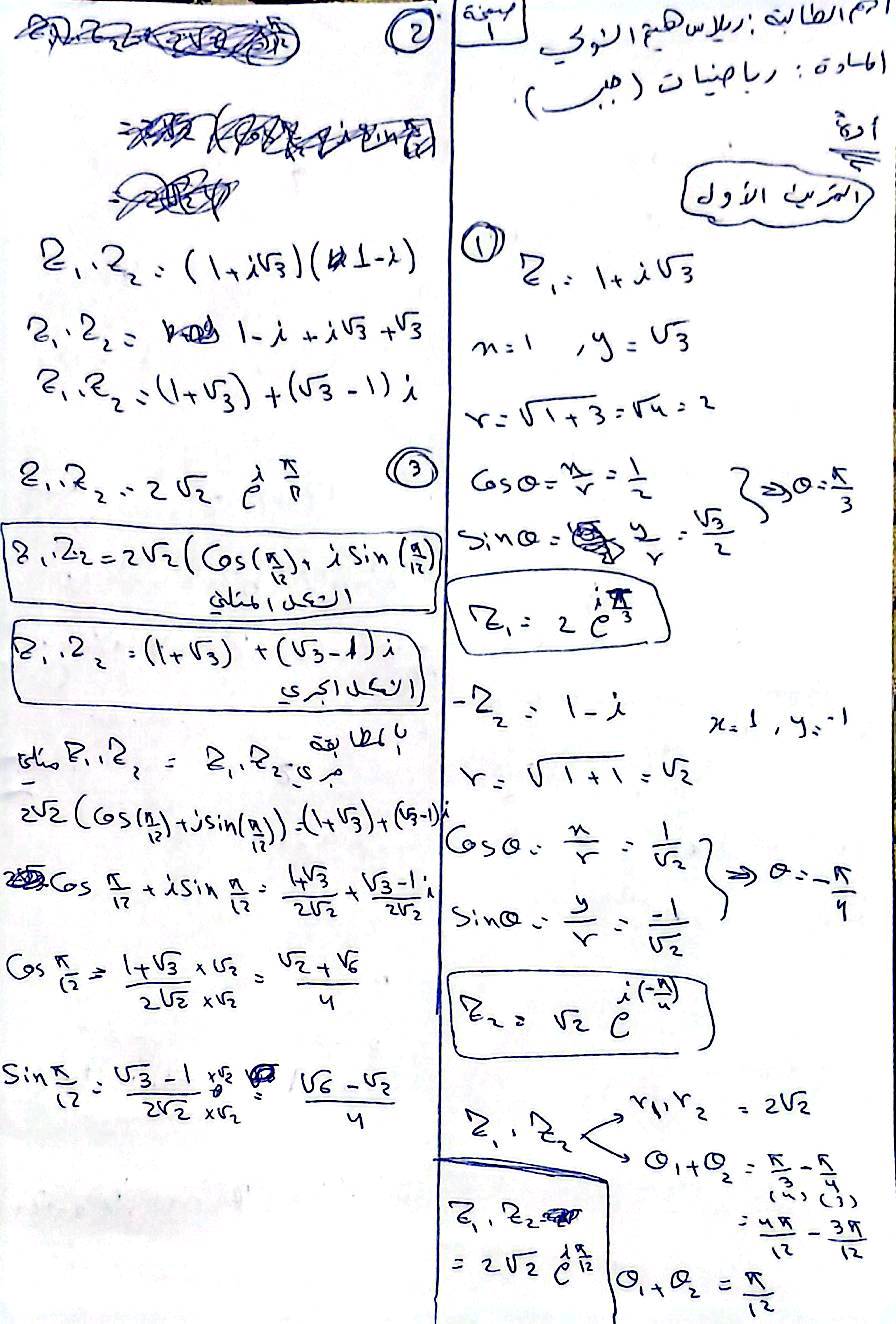 صفحة 1
اسم الطالبة:
المادة: رياضيات (جبر)
التمرين الأول
①
Z₁ = 1 + i√3
x = 1 , y = √3
r = √(1+3) = √4 = 2
Cos θ = x/r = 1/2
Sin θ = y/r = √3/2 } ⇒ θ = π/3
Z₁ = 2 e^(i π/3)
- Z₂ = 1 - i x = 1 , y = -1
r = √(1+1) = √2
Cos θ = x/r = 1/√2
Sin θ = y/r = -1/√2 } ⇒ θ = -π/4
Z₂ = √2 e^(i(-π/4))
Z₁ . Z₂ → r₁ . r₂ = 2√2
→ θ₁ + θ₂ = π/3 - π/4
(4) (3)
= 4π/12 - 3π/12
θ₁ + θ₂ = π/12
Z₁ . Z₂
= 2√2 e^(i π/12)
②
Z₁ . Z₂ = (1 + i√3)(1 - i)
Z₁ . Z₂ = 1 - i + i√3 + √3
Z₁ . Z₂ = (1 + √3) + (√3 - 1) i
③
Z₁ . Z₂ = 2√2 e^(i π/12)
Z₁ . Z₂ = 2√2 (Cos(π/12) + i Sin(π/12))
الشكل المثلثي
Z₁ . Z₂ = (1 + √3) + (√3 - 1) i
الشكل الجبري
بالمطابقة
مثلثي Z₁ . Z₂ = Z₁ . Z₂ جبري
2√2 (Cos(π/12) + i sin(π/12)) = (1+√3) + (√3-1) i
Cos π/12 + i Sin π/12 = (1+√3)/(2√2) + (√3-1)/(2√2) i
Cos π/12 = (1+√3 ×√2)/(2√2 ×√2) = (√2+√6)/4
Sin π/12 = (√3-1 ×√2)/(2√2 ×√2) = (√6-√2)/4